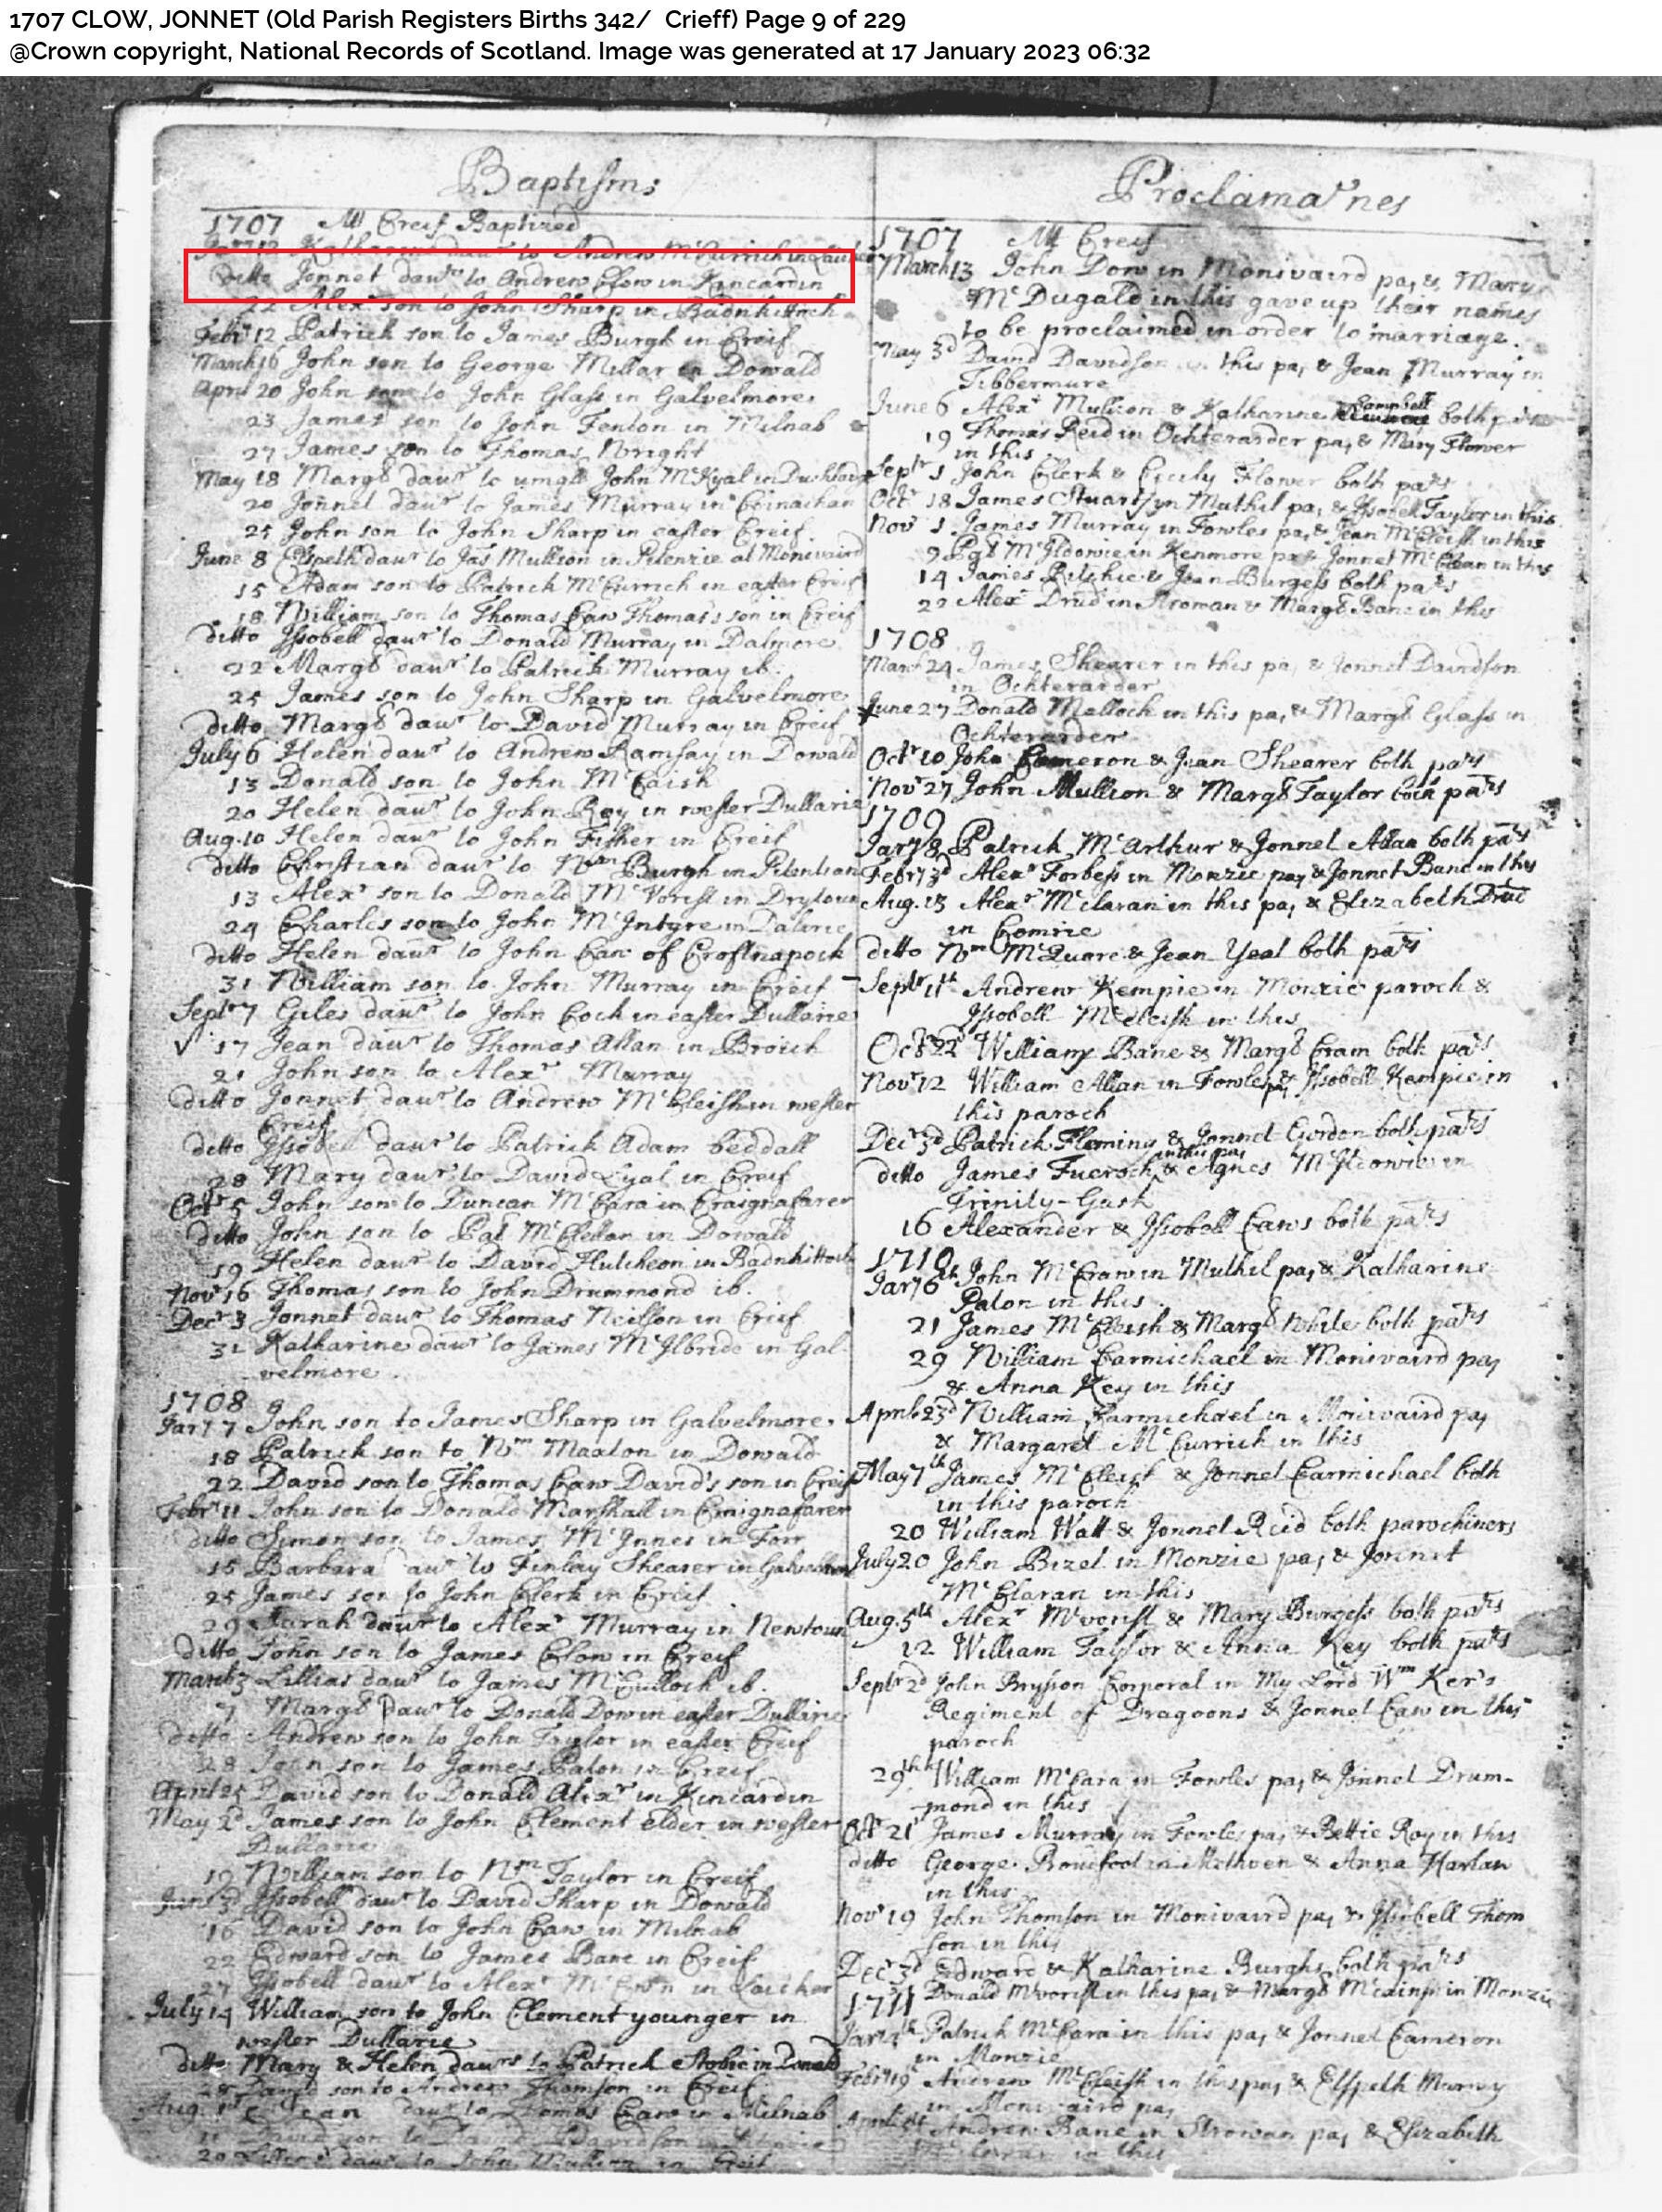 1707 CLOW, JONNET (Old Parish Registers Births 342/ Crieff) Page 9 of 229
@Crown copyright, National Records of Scotland. Image was generated at 17 January 2023 06:32
Baptisms
1707 Att Creif Baptized
Katharine dawr to Andrew McCurrich in
ditto Jonnet dawr to Andrew Clow in Kancardin
22 Alexr son to John Sharp in
Febr 12 Patrick son to James Burgh in Creif
March 16 John son to George Millar in Dowald
Aprl 20 John son to John Glass in Galvelmore
23 James son to John Fenton in Milnab
27 James son to Thomas Wright
May 18 Margt dawr to umqll John McKyal in
20 Jonnet dawr to James Murray in
25 John son to John Sharp in easter Creif
June 8 Elspeth dawr to Jas Mullion in at Monivaird
15 Adam son to Patrick McCurrich in easter Creif
18 William son to Thomas Caw Thomas's son in Creif
ditto Issobell dawr to Donald Murray in Dalmore
22 Margt dawr to Patrick Murray ib.
25 James son to John Sharp in Galvelmore
ditto Margt dawr to David Murray in Creif
July 6 Helen dawr to Andrew Ramsay in Dowald
13 Donald son to John McCaish
20 Helen dawr to John Roy in wester Dullarie
Aug. 10 Helen dawr to John Fisher in Creif
ditto Christian dawr to Wm Burgh in
13 Alexr son to Donald McVorist in Drytoun
24 Charles son to John McIntyre in Dalirie
ditto Helen dawr to John Caw of Croftnapock
31 William son to John Murray in Creif
Septr 7 Giles dawr to John Cock in easter Dullarie
17 Jean dawr to Thomas Allan in Broich
21 John son to Alexr Murray
ditto Jonnet dawr to Andrew McCleish in wester
Creif
ditto Issobell dawr to Patrick Adam beddall
28 Mary dawr to David Lyal in Creif
Octr 5 John son to Duncan McCara in Craignafarer
ditto John son to Pat McClellan in Dowald
19 Helen dawr to David Hutcheon in
Novr 16 Thomas son to John Drummond ib.
Decr 3 Jonnet dawr to Thomas Neilson in Crief
31 Katharine dawr to James McIlbride in Gal-
velmore.
1708
Jary 7 John son to James Sharp in Galvelmore.
18 Patrick son to Wm Maxton in Dowald
22 David son to Thomas Caw David's son in Creif
Febr 11 John son to Donald Marshall in Craignafarer
ditto Simon son to James McInnes in Forr
15 Barbara to Finlay Shearer in
25 James son to John Clerk in Creif
29 Sarah dawr to Alexr Murray in Newtoun
ditto John son to James Clow in Creif
March 3 Lillias dawr to James McCulloch ib.
7 Margt dawr to Donald Dow in easter Dullarie
ditto Andrew son to John Taylor in easter Creif
28 John son to James Paton in Creif
April 25 David son to Donald Alexr in Kincardin
May 2d James son to John Clement elder in wester
Dullarie
12 William son to Wm Taylor in Creif
June 3d Issobell dawr to David Sharp in Dowald
16 David son to John Caw in Milnab
22 Edward son to James Bane in Creif
27 Issobell dawr to Alexr in
July 14 William son to John Clement younger in
wester Dullarie
ditto Mary & Helen dawrs to Patrick Stobie in Dowald
28 David son to Andrew Thomson in Creif
Aug. 1st Jean dawr to Thomas Caw in Milnab
11 David son to David Davidson in
20 dawr to John Mullion in Creif
Proclamatnes
1707 Att Creif
March 13 John Dow in Monivaird pa, & Mary
McDugald in this gave up their names
to be proclaimed in order to marriage.
May 3d David Davidson in this pa, & Jean Murray in
Tibbermure
June 6 Alexr Mulison & Katharine Campbell both
19 Thomas Reid in Ochterarder pa, & Mary Flower
in this
Septr 1 John Clerk & Cicily Flower both pars
Octr 18 James Stuart in Muthil pa, & Issobell Taylor in this
Novr 1 James Murray in Fowles pa, & Jean McCleish in this
9 Pat McIldowie in Kenmore pa & Jonnet McClean in this
14 James Ritchie & Jean Burgess both pars
22 Alexr Drud in Strowan & Margt Bane in this
1708
March 24 James Shearer in this pa, & Jonnet Davidson
in Ochterarder
June 27 Donald Malloch in this pa, & Margt Glass in
Ochterarder
Octr 10 John Cameron & Jean Shearer both pars
Novr 27 John Mullion & Margt Taylor both pars
1709
Jary 8 Patrick McArthur & Jonnet Adam both pars
Febr 3d Alexr Forbess in Monzie pa, & Jonnet Bane in this
Aug. 13 Alexr McLaran in this pa, & Elizabeth
in Comrie
ditto Wm McQuare & Jean Yeat both pars
Septr 11th Andrew Kempie in Monzie paroch &
Issobell McCleish in this
Octr 22d William Bane & Margt Cram both pars
Novr 12 William Allan in Fowles pa, & Issobell Kempie in
this paroch
Decr 3d Patrick Fleming & Jonnet Gordon both pars
in this pa,
ditto James Fueroch & Agnes McIldowie in
Trinity-Gask
16 Alexander & Issobell Caws both pars
1710
Jary 6th John McCraw in Muthil pa, & Katharine
Paton in this.
21 James McCleish & Margt White both pars
29 William Carmichael in Monivaird pa,
& Anna Key in this
April 23d William Carmichael in Monivaird pa,
& Margaret McCurrich in this
May 7th James McCleish & Jonnet Carmichael both
in this paroch
20 William Watt & Jonnet Reid both parochiners
July 20 John Bizet in Monzie pa, & Jonnet
McClaran in this
Aug. 5th Alexr McVorist & Mary Burgess both pars
12 William Taylor & Anna Key both pars
Septr 2d John Bryson Corporal in My Lord Wm Ker's
Regiment of Dragoons & Jonnet Caw in this
paroch
29th William McCara in Fowles pa, & Jonnet Drum-
mond in this
Octr 21 James Murray in Fowles pa, & Bettie Roy in this
ditto George in Methven & Anna
in this
Novr 19 John Thomson in Monivaird pa, & Issobell Thom
son in this
Decr 3d Edward & Katharine Burghs both pars
1711 Donald McVorist in this pa, & Margt in Monzie
Patrick McCara in this pa, & Jonnet Cameron
in Monzie
Febr 19 Andrew McCleish in this pa, & Elspeth Murray
in pa,
April Andrew Bane in Strowan pa, & Elizabeth
in this